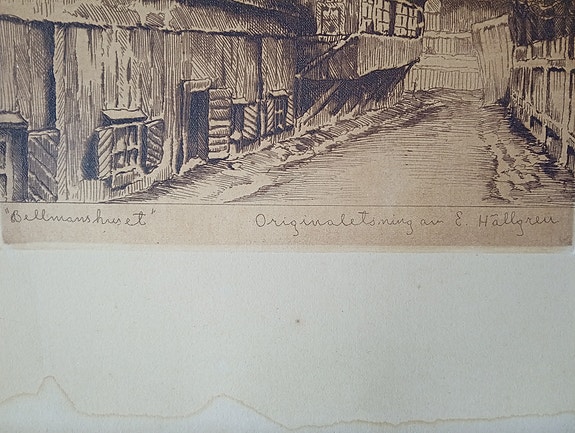 "Bellmanshuset" Originaletsning av E. Hällgren